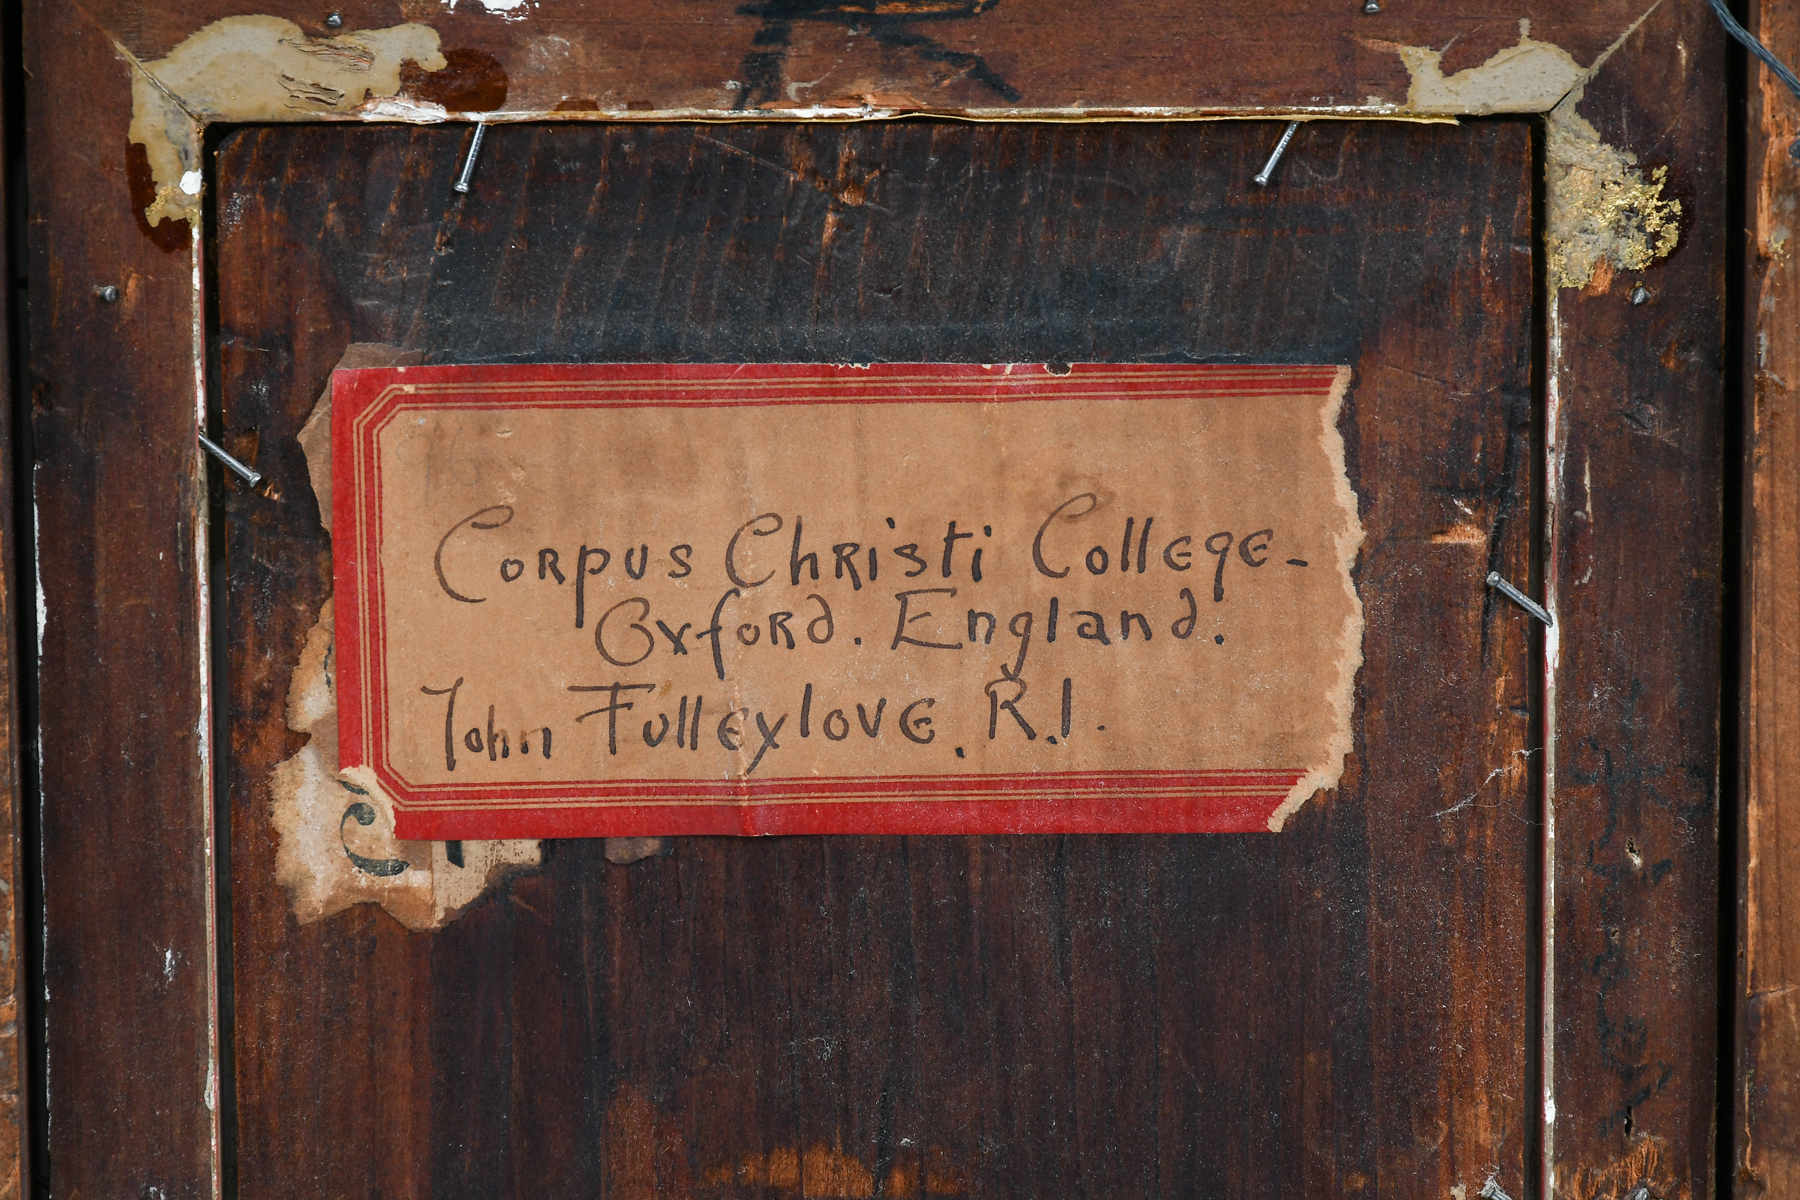 Corpus Christi College-
Oxford. England.
John Fulleylove. R.I.